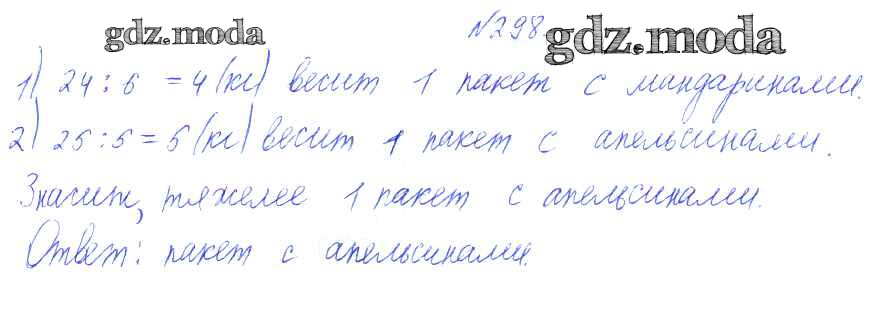 №298.
gdz.moda gdz.moda
1) 24 : 6 = 4 (кг) весит 1 пакет с мандаринами.
2) 25 : 5 = 5 (кг) весит 1 пакет с апельсинами.
Значит, тяжелее 1 пакет с апельсинами.
Ответ: пакет с апельсинами.